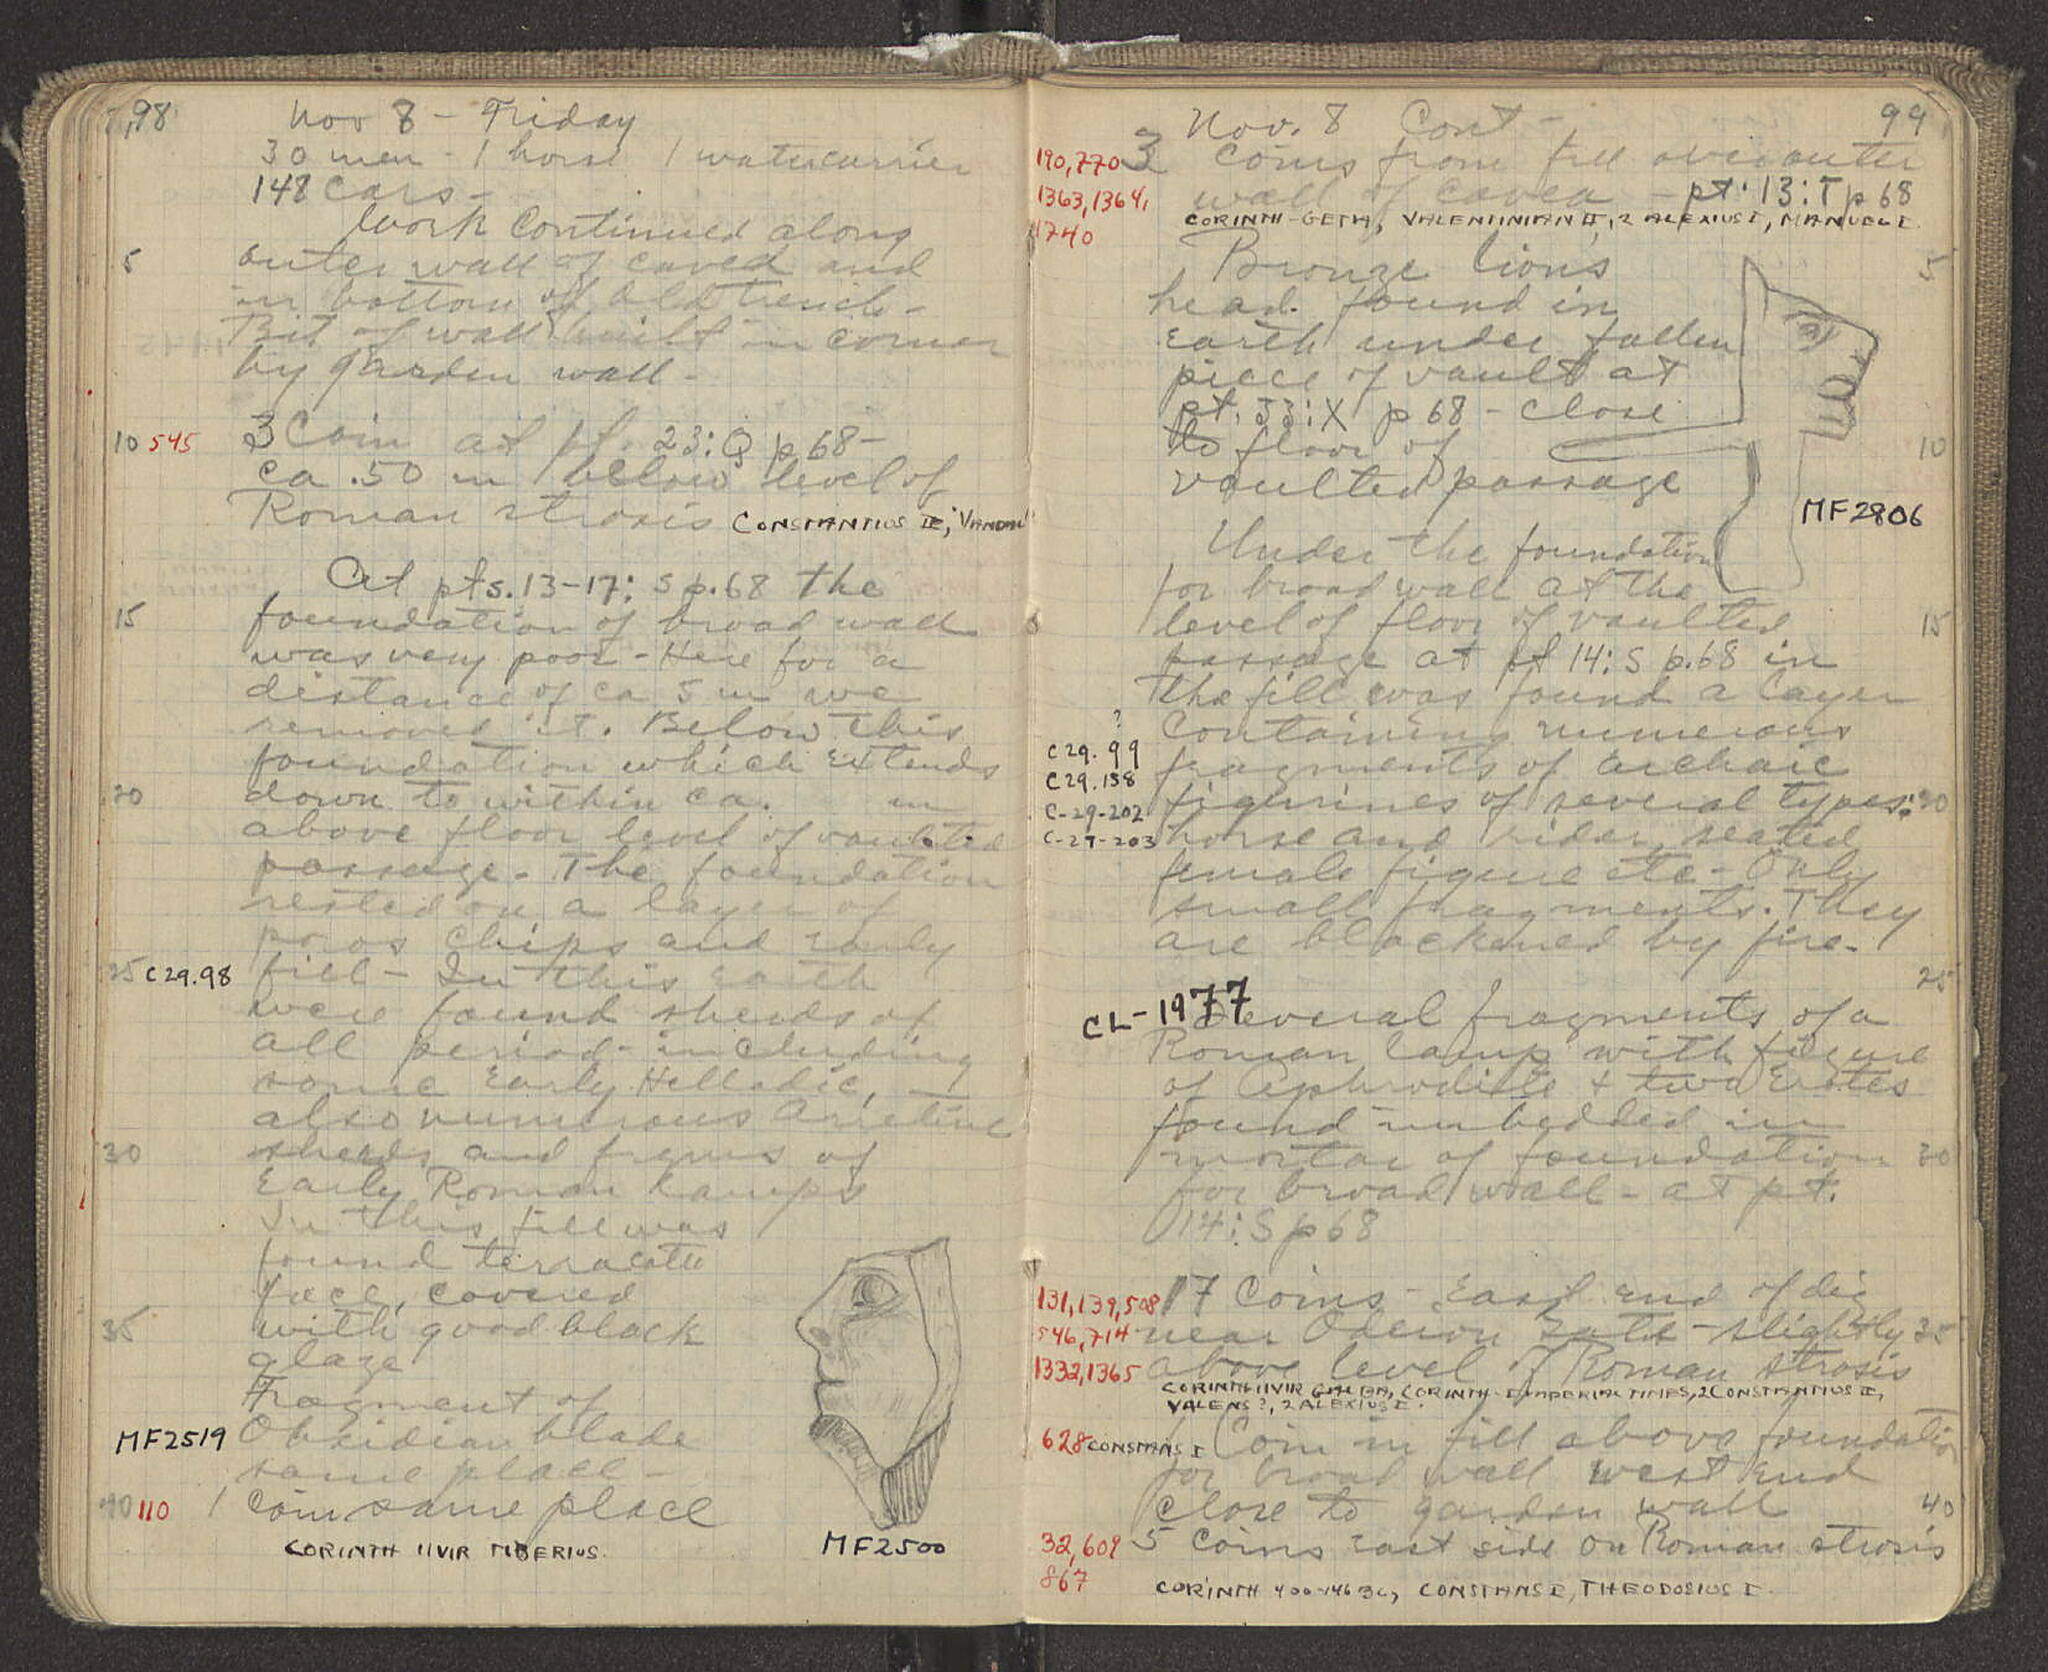 98
Nov 8 - Friday
30 men - 1 horse 1 watercarrier
148 cars -
Work continued along
5 outer wall of cavea and
in bottom of old trench -
Bit of wall built in corner
by garden wall -
10 545 3 Coin at pt. 23:Q p 68 -
ca .50 m below level of
Roman strosis CONSTANTIUS II, "VANDAL"
At pts. 13-17: S p. 68 the
15 foundation of broad wall
was very poor - Here for a
distance of ca 5 m we
removed it. Below this
foundation which extends
20 down to within ca. m
above floor level of vaulted
passage - The foundation
rested on a layer of
poros chips and early
25 C29.98 fill - In this earth
were found sherds of
all period - including
some Early Helladic,
also numerous Arretine
30 sherds and frgms of
Early Roman Lamps
In this fill was
found terracotta
face, covered
35 with good black
glaze
Fragment of
MF2519 Obsidian blade
same place -
40 110 1 Coin same place
CORINTH IIVIR TIBERIUS.
MF2500
Nov. 8 Cont - 99
190,770 3 Coins from fill over outer
1363, 1364, wall of Cavea - pt. 13:T p 68
CORINTH - GETA, VALENTINIAN II, 2 ALEXIUS I, MANUEL I.
1740
Bronze lion's 5
head found in
Earth under fallen
piece of vault at
pt. 33:X p 68 - close
to floor of 10
vaulted passage
MF2806
Under the foundation
for broad wall at the
level of floor of vaulted 15
passage at pt 14:S p.68 in
the fill was found a layer
? containing numerous
C29.99 fragments of archaic
C29.158
C-29-202 figurines of several types: 20
C-29-203 horse and rider, seated
female figure etc - Only
small fragments. They
are blackened by fire -
25
CL-1977 Several fragments of a
Roman Lamp with figure
of Aphrodite + two Erotes
found imbedded in
mortar of foundation 30
for broad wall - at pt.
14:S p 68
131,139,508 17 Coins - East end of dig
546,714 near Odeion Gate - slightly 35
1332,1365 above level of Roman strosis
CORINTH IIVIR GALBA, CORINTH - IMPERIAL TIMES, 2 CONSTANTIUS II,
VALENS?, 2 ALEXIUS I.
628 CONSTANS I 1 Coin in fill above foundation
for broad wall west end
close to garden wall 40
32,609 5 Coins east side on Roman strosis
867 CORINTH 400-146 BC, CONSTANS I, THEODOSIUS I.